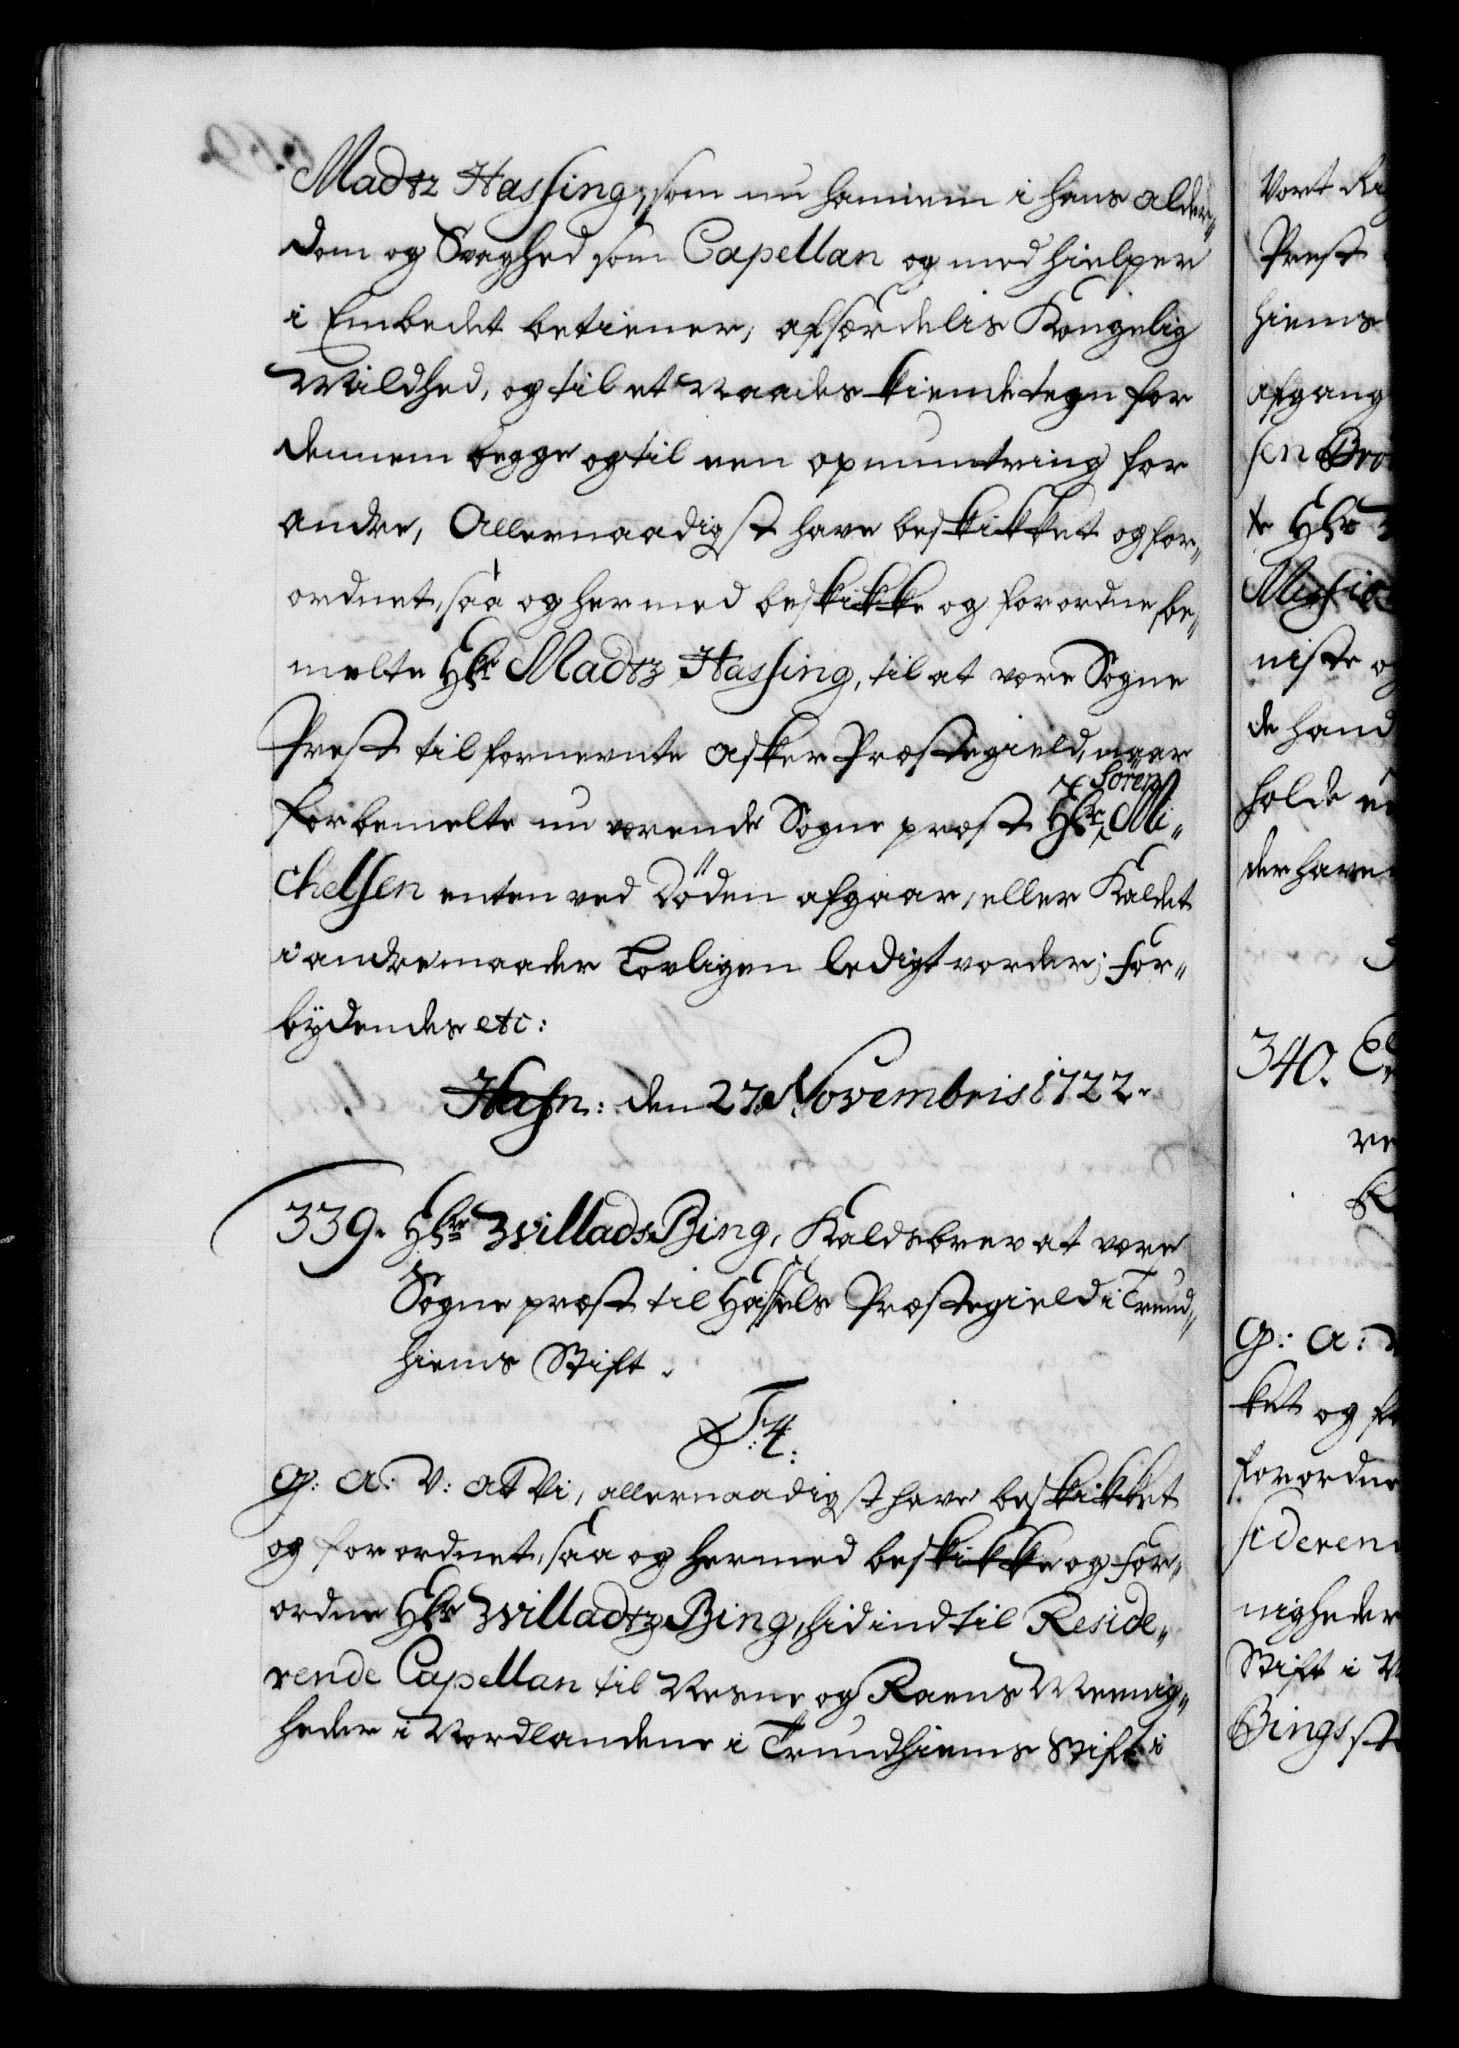 Madtz Hassing, som nu hannem i hans alder„
dom og Svaghed som Capellan og medhielper
i Embedet betiener, af særdelis Kongelig
Mildhed, og til et Naades kiendetegn for
dennem begge og til een opmuntring for
andre, Allernaadigst have beskikket og for„
ordnet, saa og hermed beskikke og forordne be„
melte Hr Madtz Hassing, til at være Sogne
Prest til fornevnte Asker Præstegield, naar
Sören
forbemelte nu værende Sogne præst Hr: Mi„
chelsen enten ved Döden afgaar, eller Kaldet
i andre maader Lovligen ledigt vorder; for„
bydendes etc:
Hafn: den 27. Novembris 1722.
339. Hr Willads Bing, Kaldsbrev at være
Sogne præst til Hassels Præstegield i Trund„
hiems Stift.
F: 4.
G: A: V: at Vi, allernaadigst have beskikket
og forordnet, saa og hermed beskikke og for„
ordne Hr Willadtz Bing, hidindtil Reside„
rende Capellan til Nesne og Raens Meenig„
heder i Nordlandene i Trundhiems Stift i
Vort
Prest
hiems
afgang
sen Bro
te Hr
Missio
niste
de hand
holde
der have
340.
G: A:
ket og
forordne
siderend
nigheder
Stift i
Bings